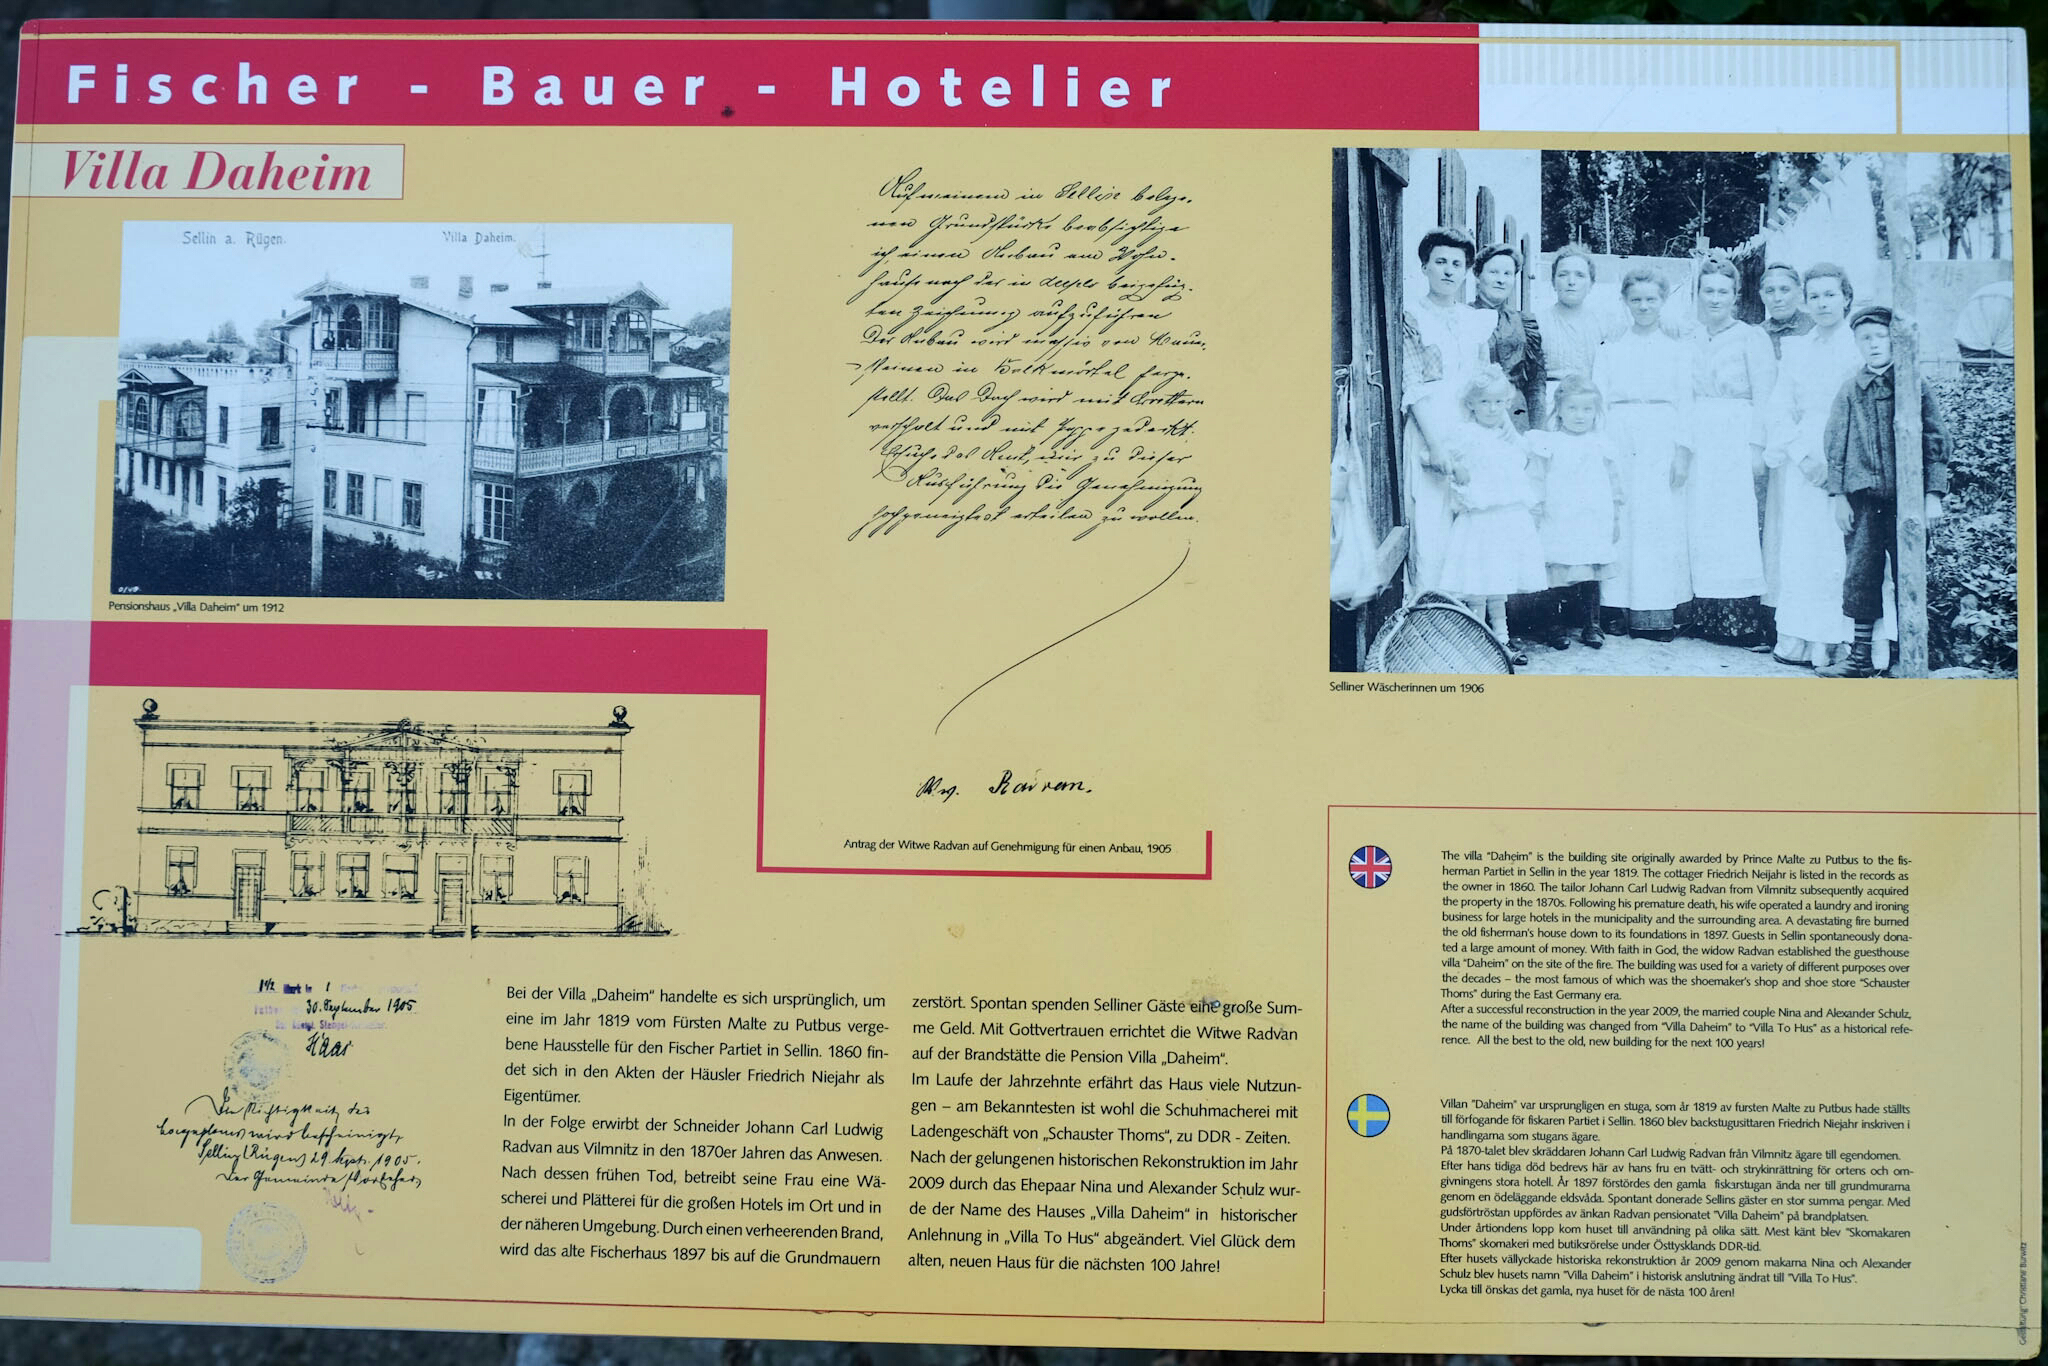 Fischer - Bauer - Hotelier
Villa Daheim
Sellin a. Rügen.
Villa Daheim.
Pensionshaus „Villa Daheim“ um 1912
Auf meinem in Sellin belege-
nen Grundstücke beabsichtige
ich einen Anbau am Wohn-
hause nach der in duplo beigefüg-
ten Zeichnung aufzuführen
Der Anbau wird massiv von Mauer-
steinen in Kalkmörtel herge-
stellt. Das Dach wird mit Brettern
verschalt und mit Pappe gedeckt.
Ersuche das Amt, mir zu dieser
Ausführung die Genehmigung
hochgeneigtest erteilen zu wollen.
Ww. Radvan.
Antrag der Witwe Radvan auf Genehmigung für einen Anbau, 1905
Selliner Wäscherinnen um 1906
30. September 1905
Haas
Die Richtigkeit des
wird bescheinigt,
Sellin (Rügen) 29. Sept. 1905.
Der Gemeinde Vorsteher
Bei der Villa „Daheim“ handelte es sich ursprünglich, um
eine im Jahr 1819 vom Fürsten Malte zu Putbus verge-
bene Hausstelle für den Fischer Partiet in Sellin. 1860 fin-
det sich in den Akten der Häusler Friedrich Niejahr als
Eigentümer.
In der Folge erwirbt der Schneider Johann Carl Ludwig
Radvan aus Vilmnitz in den 1870er Jahren das Anwesen.
Nach dessen frühen Tod, betreibt seine Frau eine Wä-
scherei und Plätterei für die großen Hotels im Ort und in
der näheren Umgebung. Durch einen verheerenden Brand,
wird das alte Fischerhaus 1897 bis auf die Grundmauern
zerstört. Spontan spenden Selliner Gäste eine große Sum-
me Geld. Mit Gottvertrauen errichtet die Witwe Radvan
auf der Brandstätte die Pension Villa „Daheim“.
Im Laufe der Jahrzehnte erfährt das Haus viele Nutzun-
gen – am Bekanntesten ist wohl die Schuhmacherei mit
Ladengeschäft von „Schauster Thoms“, zu DDR - Zeiten.
Nach der gelungenen historischen Rekonstruktion im Jahr
2009 durch das Ehepaar Nina und Alexander Schulz wur-
de der Name des Hauses „Villa Daheim“ in historischer
Anlehnung in „Villa To Hus“ abgeändert. Viel Glück dem
alten, neuen Haus für die nächsten 100 Jahre!
The villa "Daheim" is the building site originally awarded by Prince Malte zu Putbus to the fis-
herman Partiet in Sellin in the year 1819. The cottager Friedrich Neijahr is listed in the records as
the owner in 1860. The tailor Johann Carl Ludwig Radvan from Vilmnitz subsequently acquired
the property in the 1870s. Following his premature death, his wife operated a laundry and ironing
business for large hotels in the municipality and the surrounding area. A devastating fire burned
the old fisherman's house down to its foundations in 1897. Guests in Sellin spontaneously dona-
ted a large amount of money. With faith in God, the widow Radvan established the guesthouse
villa "Daheim" on the site of the fire. The building was used for a variety of different purposes over
the decades – the most famous of which was the shoemaker's shop and shoe store "Schauster
Thoms" during the East Germany era.
After a successful reconstruction in the year 2009, the married couple Nina and Alexander Schulz,
the name of the building was changed from "Villa Daheim" to "Villa To Hus" as a historical refe-
rence. All the best to the old, new building for the next 100 years!
Villan "Daheim" var ursprungligen en stuga, som år 1819 av fursten Malte zu Putbus hade ställts
till förfogande för fiskaren Partiet i Sellin. 1860 blev backstugusittaren Friedrich Niejahr inskriven i
handlingarna som stugans ägare.
På 1870-talet blev skräddaren Johann Carl Ludwig Radvan från Vilmnitz ägare till egendomen.
Efter hans tidiga död bedrevs här av hans fru en tvätt- och strykinrättning för ortens och om-
givningens stora hotell. År 1897 förstördes den gamla fiskarstugan ända ner till grundmurarna
genom en ödeläggande eldsvåda. Spontant donerade Sellins gäster en stor summa pengar. Med
gudsförtröstan uppfördes av änkan Radvan pensionatet "Villa Daheim" på brandplatsen.
Under årtiondens lopp kom huset till användning på olika sätt. Mest känt blev "Skomakaren
Thoms" skomakeri med butiksrörelse under Östtysklands DDR-tid.
Efter husets vällyckade historiska rekonstruktion år 2009 genom makarna Nina och Alexander
Schulz blev husets namn "Villa Daheim" i historisk anslutning ändrat till "Villa To Hus".
Lycka till önskas det gamla, nya huset för de nästa 100 åren!
Gestaltung: Christiane Burwitz